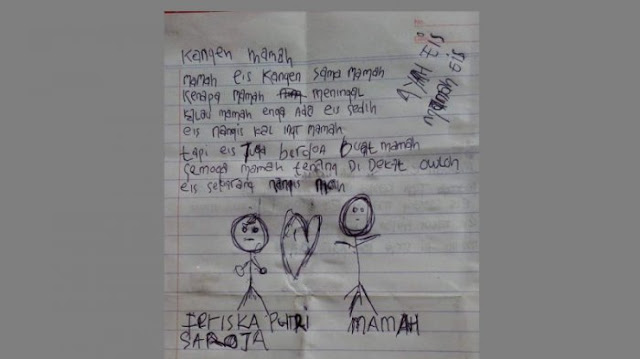 kangen mamah
mamah eis kangen sama mamah
kenapa mamah meninggal
kalau mamah enga Ada eis sedih
eis nangis kal ingt mamah
tapi eis Juga berdoa buat mamah
semoga mamah tenang Di Dekat owloh
eis sekarang nangis
AYAH EIS
mamah EIS
PUTRI
MAMAH